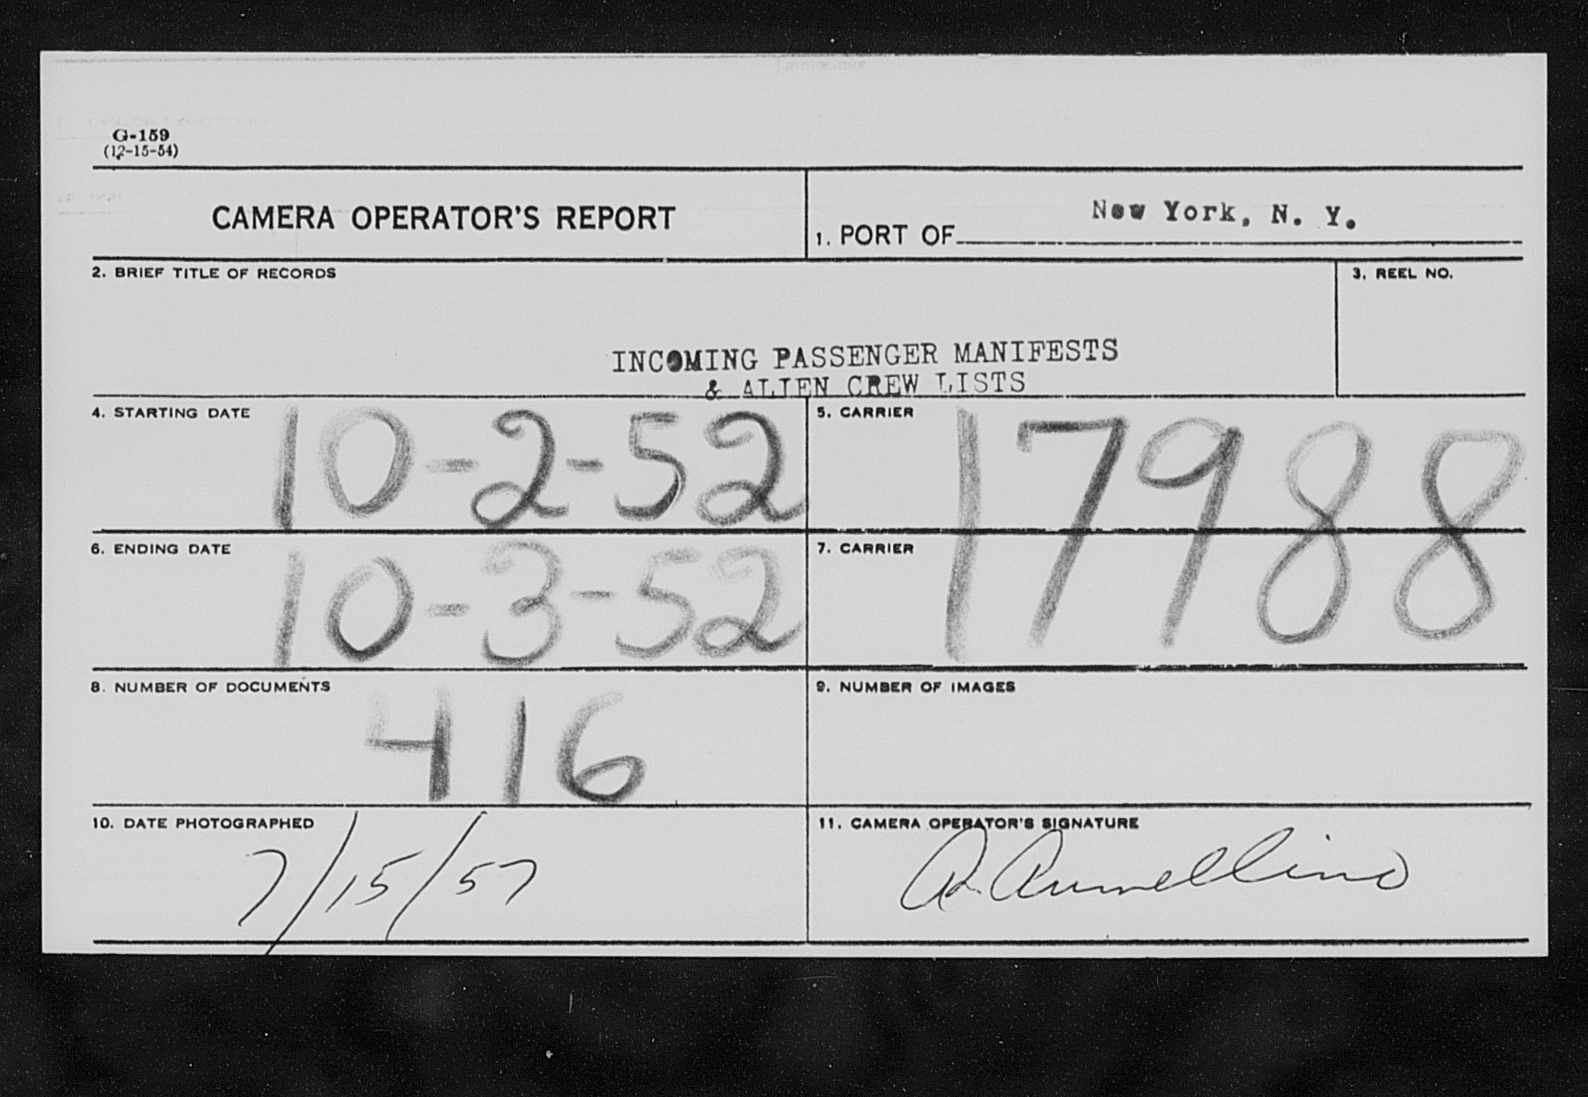 G-159
(12-15-54)
CAMERA OPERATOR'S REPORT
1. PORT OF New York, N. Y.
2. BRIEF TITLE OF RECORDS
3. REEL NO.
INCOMING PASSENGER MANIFESTS
& ALIEN CREW LISTS
4. STARTING DATE 10-2-52
5. CARRIER
17988
6. ENDING DATE 10-3-52
7. CARRIER
8. NUMBER OF DOCUMENTS
416
9. NUMBER OF IMAGES
10. DATE PHOTOGRAPHED
7/15/57
11. CAMERA OPERATOR'S SIGNATURE